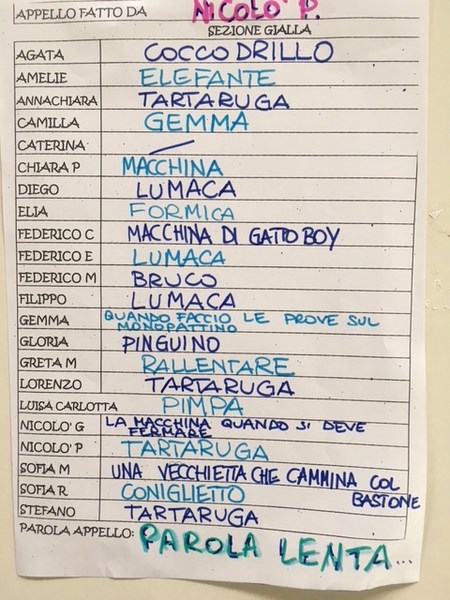 APPELLO FATTO DA NICOLO' P.
SEZIONE GIALLA
AGATA COCCODRILLO
AMELIE ELEFANTE
ANNACHIARA TARTARUGA
CAMILLA GEMMA
CATERINA
CHIARA P MACCHINA
DIEGO LUMACA
ELIA FORMICA
FEDERICO C MACCHINA DI GATTO BOY
FEDERICO E LUMACA
FEDERICO M BRUCO
FILIPPO LUMACA
GEMMA QUANDO FACCIO LE PROVE SUL
MONOPATTINO
GLORIA PINGUINO
GRETA M RALLENTARE
LORENZO TARTARUGA
LUISA CARLOTTA PIMPA
NICOLO' G LA MACCHINA QUANDO SI DEVE
FERMARE
NICOLO' P TARTARUGA
SOFIA M UNA VECCHIETTA CHE CAMMINA COL
BASTONE
SOFIA R CONIGLIETTO
STEFANO TARTARUGA
PAROLA APPELLO: PAROLA LENTA...